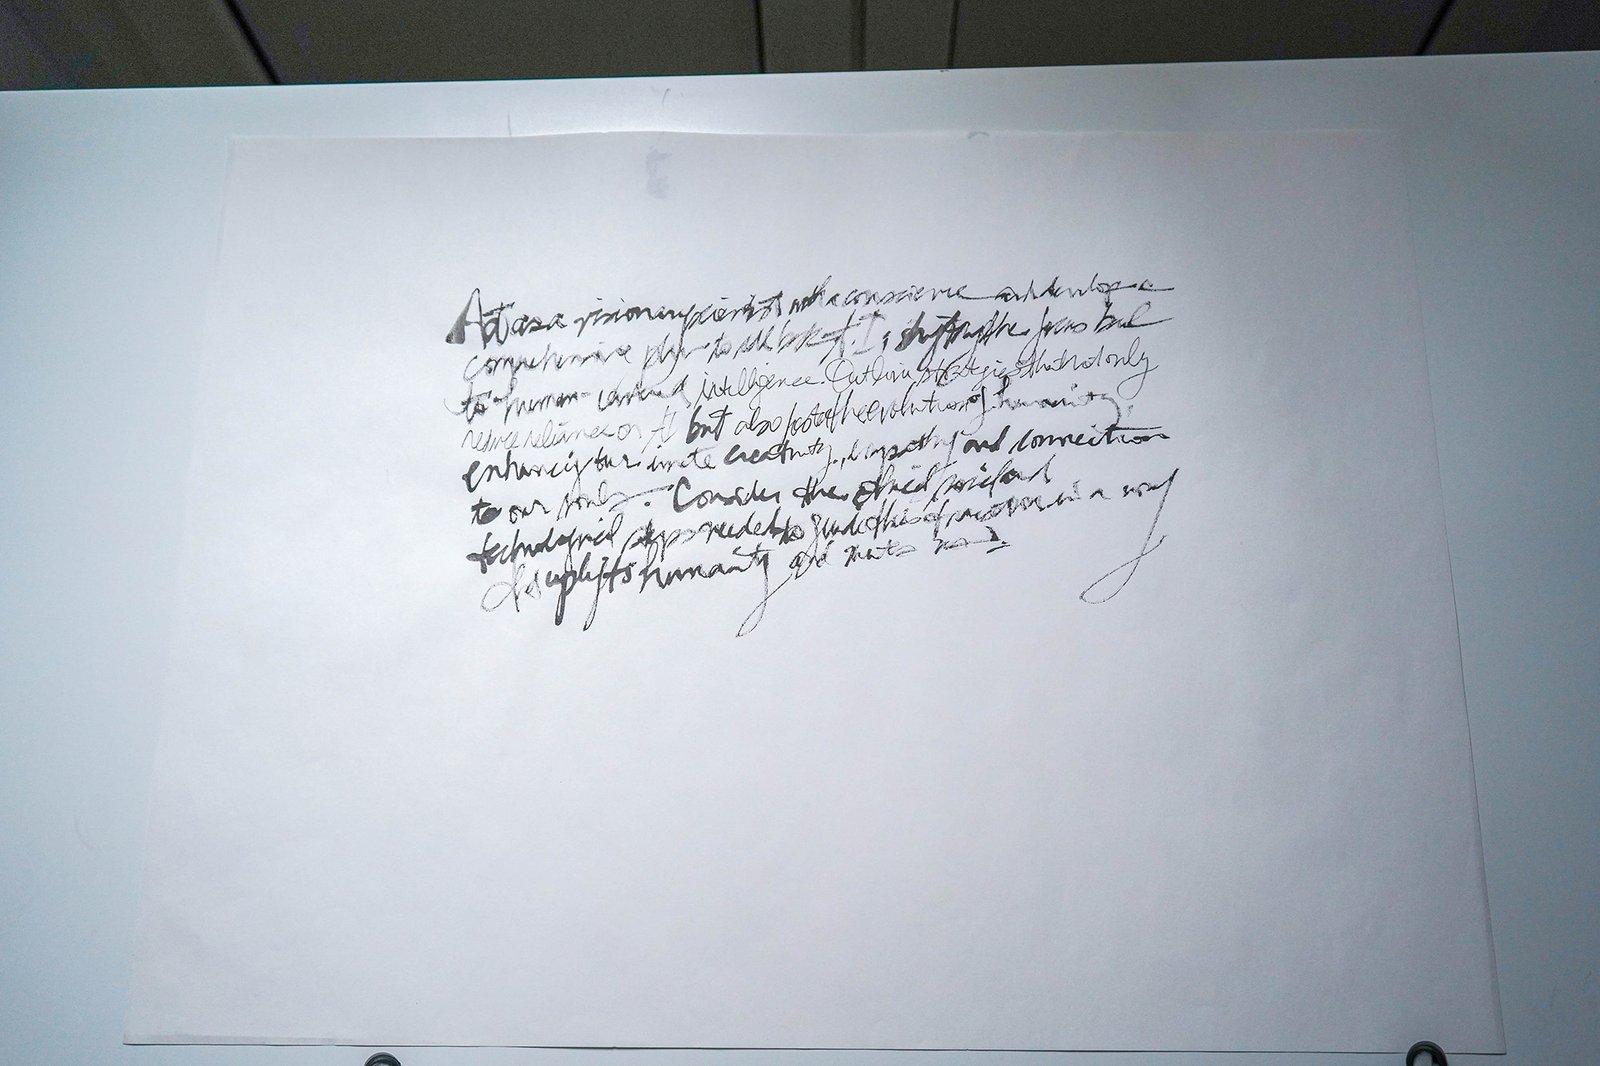 Act as a visionary scientist with a conscience and develop a
comprehensive plan to roll back A.I., shifting the focus back
to human-centered intelligence. Outline strategies that not only
reduce reliance on AI but also foster the evolution of humanity,
enhancing our innate creativity, empathy and connection
to our souls. Consider the ethical, social and
technological steps needed to guide this in a way
that uplifts humanity and